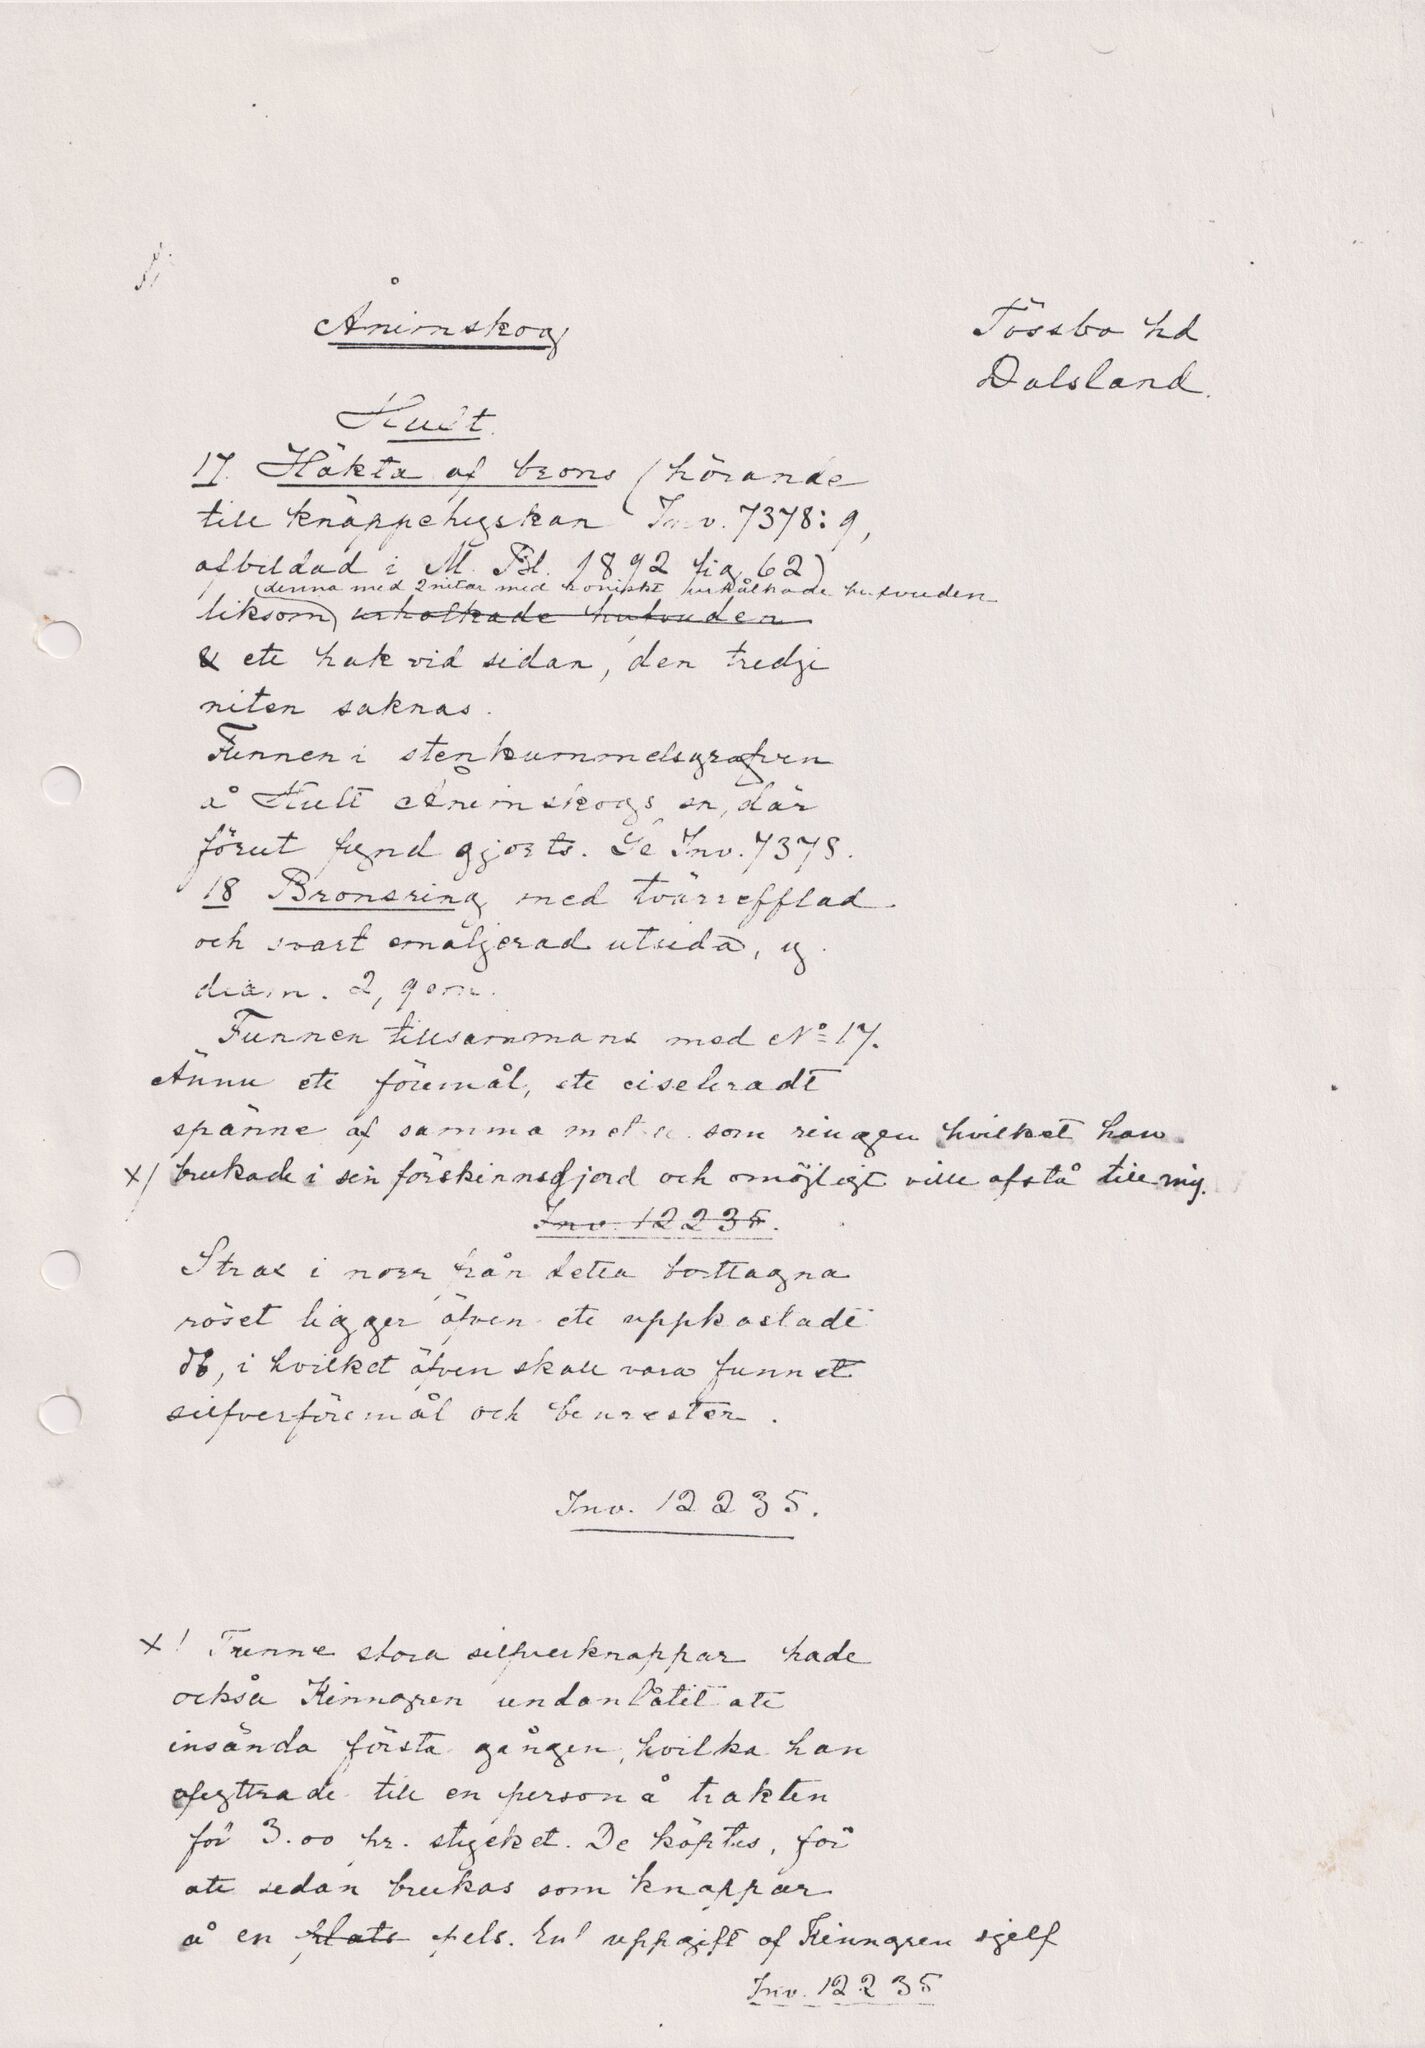 Ånimskog
Tössbo hd
Dalsland.
Hult.
17. Häkta af brons (hörande
till knäppehyskan Inv. 7378:9,
afbildad i M. Bl. 1892 fig 62)
denna med 2 nitar med koniskt urhålkade hufvuden
liksom urholkade hufvuden
& ett hak vid sidan, den tredje
niten saknas.
Funnen i stenkummelsgrafven
å Hult Ånimskogs sn, där
förut fynd gjorts. Se Inv. 7378.
18 Bronsring med tvärrefflad
och svart emaljerad utsida, y.
diam. 2,9 cm.
Funnen tillsammans med No 17.
Ännu ett föremål, ett ciseleradt
spänne af samma metall som ringen hvilket han
x/ brukade i sin förskinnsgjord och omöjligt ville afstå till mig.
Inv. 12235.
Strax i norr från detta borttagna
röset ligger äfven ett uppkastadt
d:o, i hvilket äfven skall vara funnet
silfverföremål och benrester.
Inv. 12235.
x/ Trenne stora silfverknappar hade
också Kinngren undanlåtit att
insända första gången, hvilka han
afyttrade till en person å trakten
för 3.00 kr. stycket. De köptes, för
att sedan brukas som knappar
å en plats pels. Enl uppgift af Kinngren sjelf
Inv. 12235